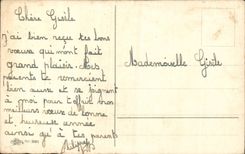 Chère Gisèle
J'ai bien reçu tes bons
vœux qui m'ont fait
grand plaisir. Mes
parents te remercient
bien aussi et se joignent
à moi pour t'offrir nos
meilleurs vœux de bonne
et heureuse année
ainsi qu'à tes parents
Mademoiselle Gisèle